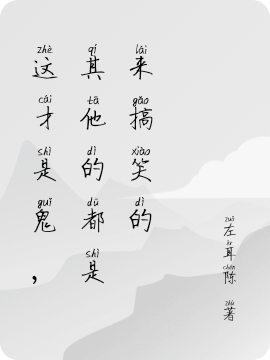 zhè cái shì guǐ
这才是鬼，
qí tā dì dū shì
其他的都是
lái gǎo xiào dì
来搞笑的
zuǒ ěr chén zhù
左耳陈 著